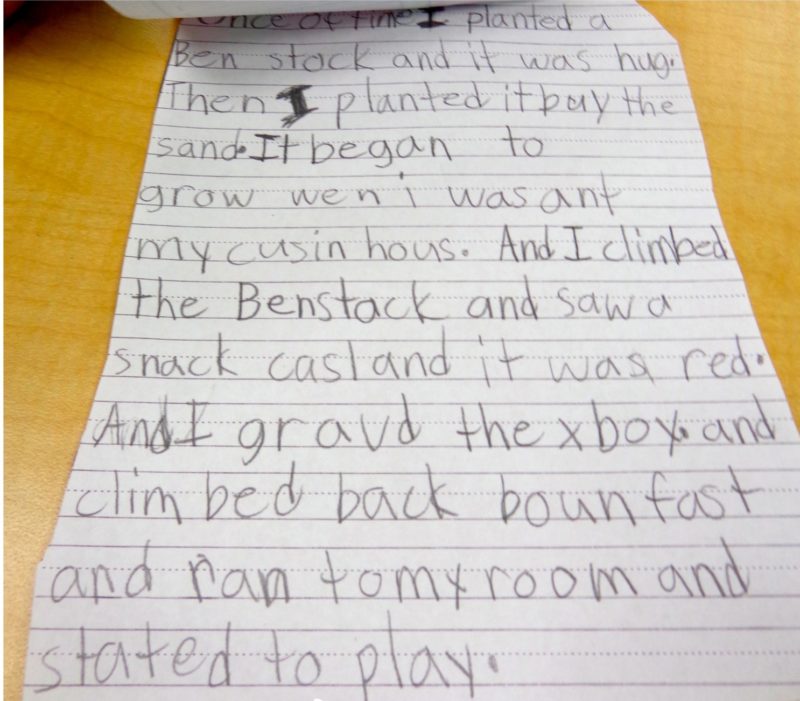 Once of time I planted a
Ben stack and it was hug.
Then I planted it buy the
sand. It began to
grow wen i was ant
my cusin hous. And I climbed
the Benstack and saw a
snack casl and it was red.
And I gravd the xbox. and
climbed back boun fast
and ran to my room and
stated to play.